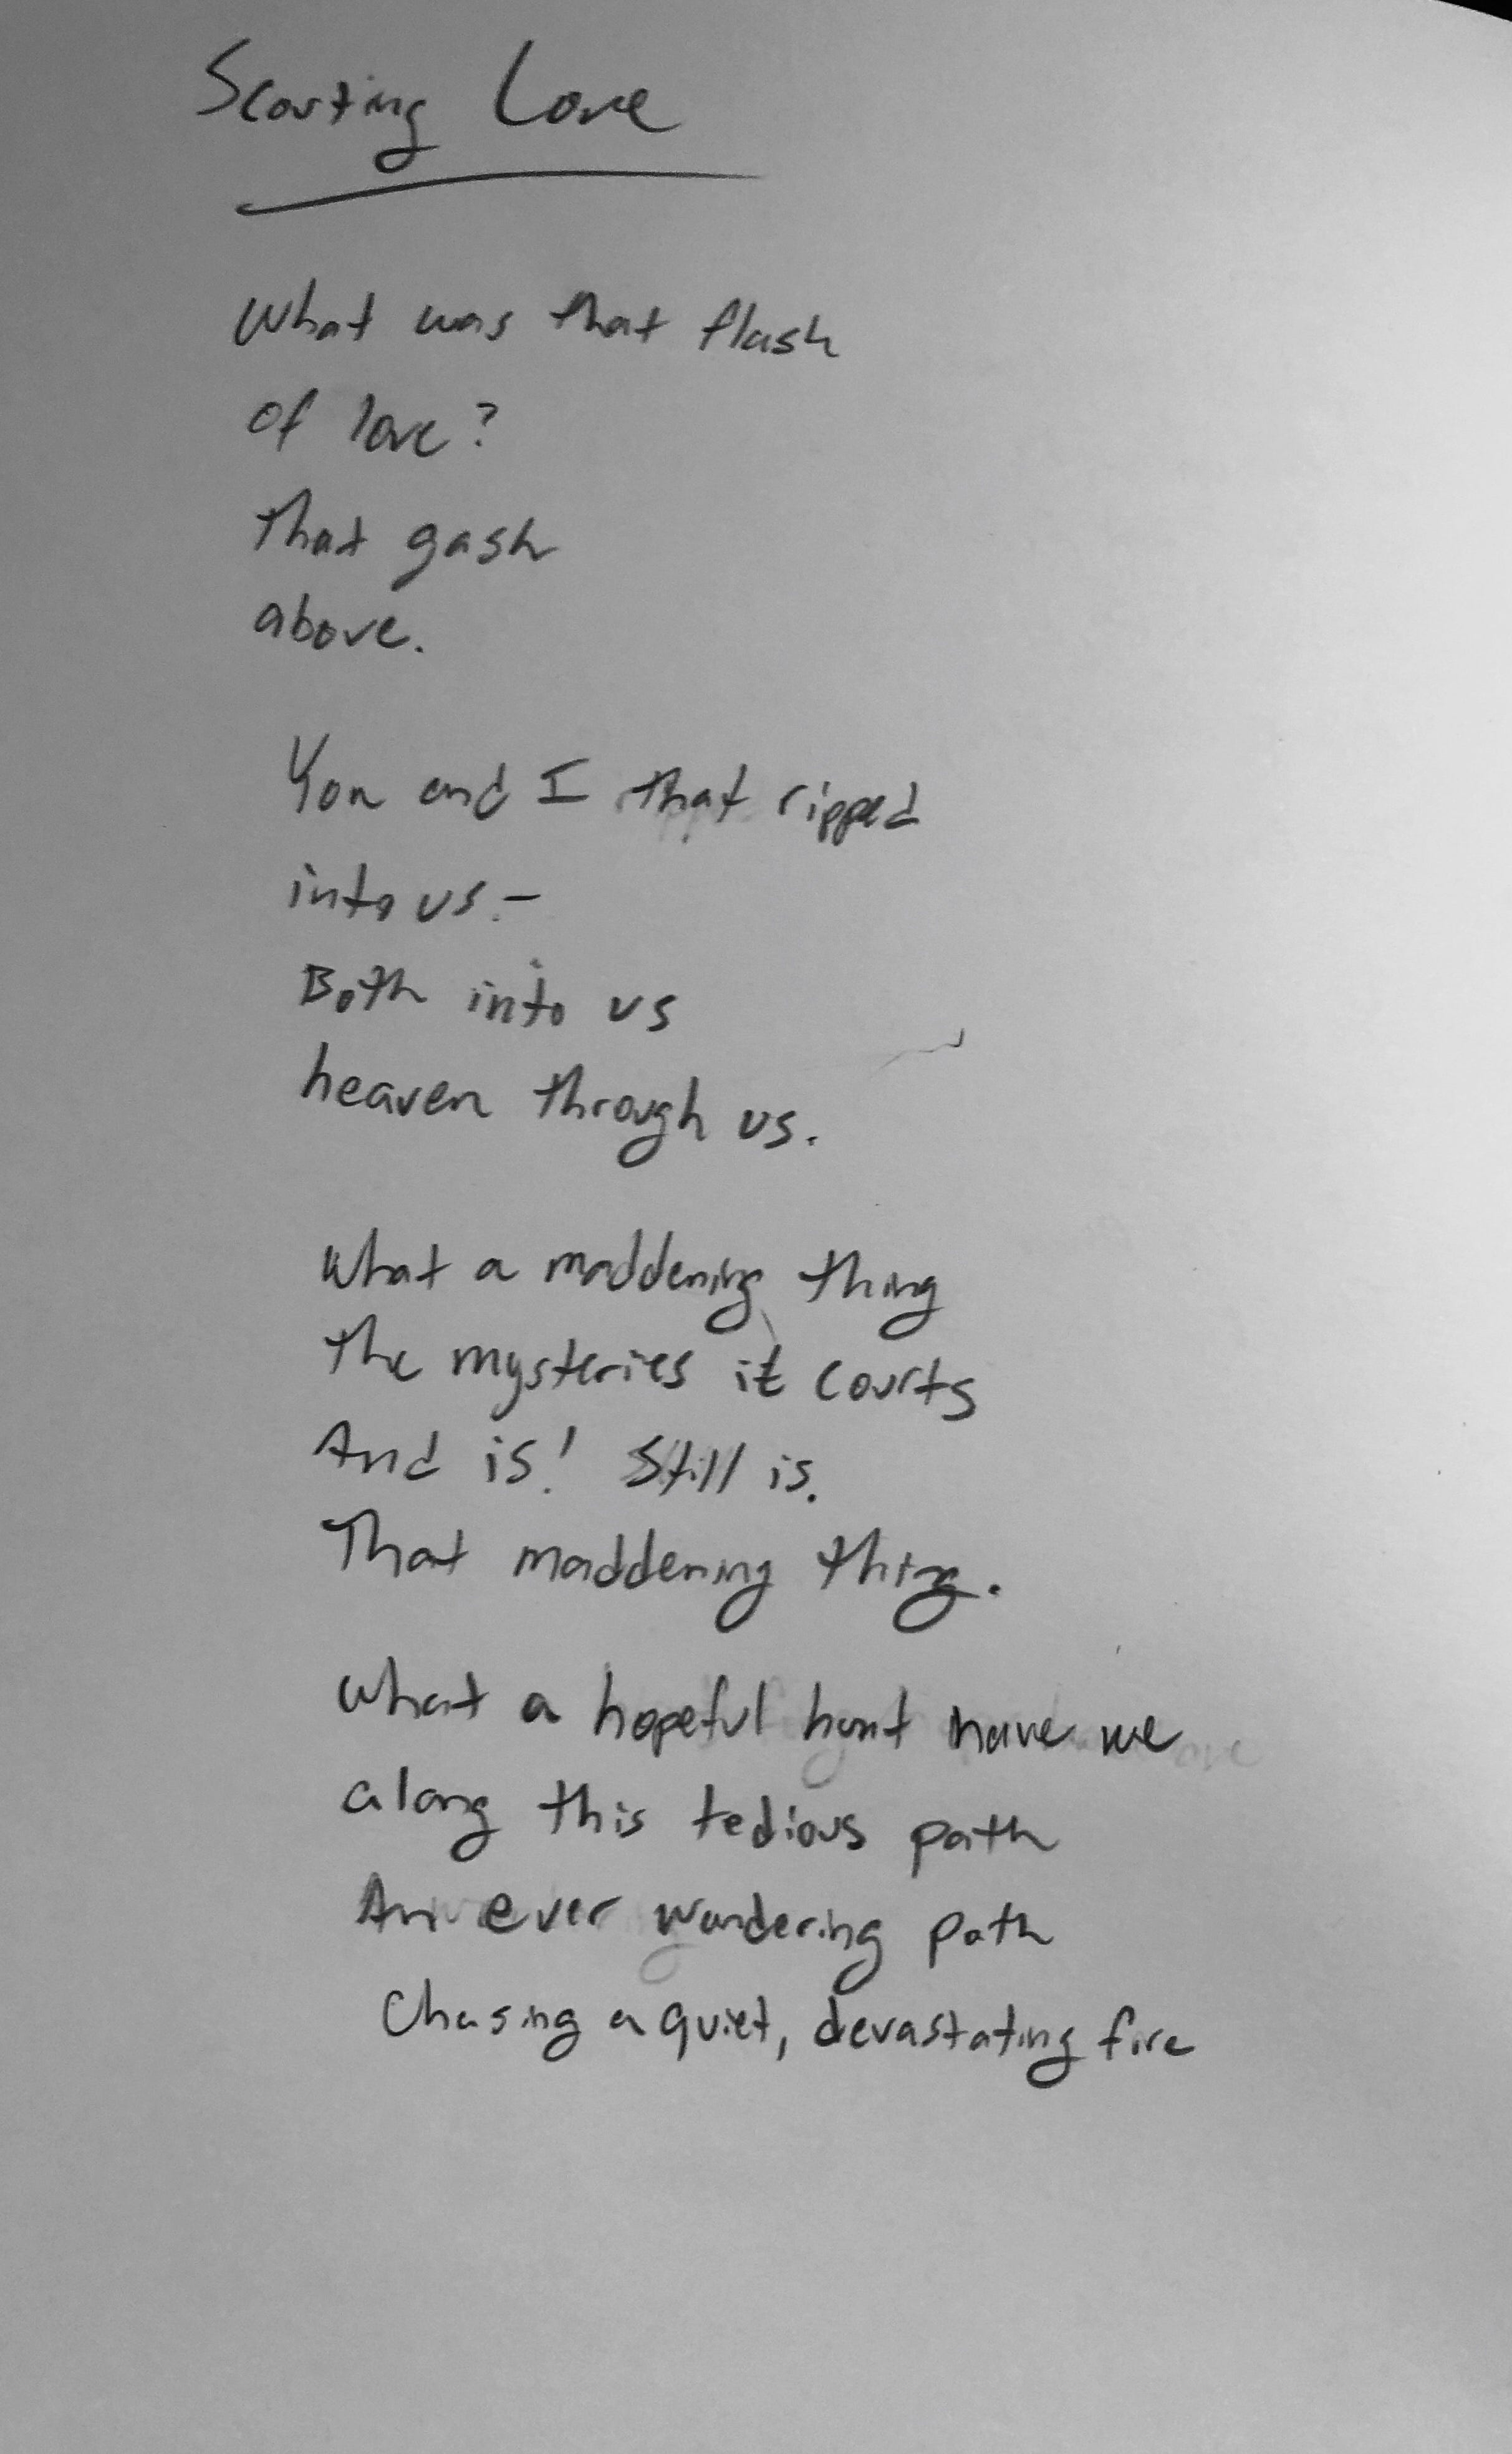 Scouting Love
What was that flash
of love?
That gash
above.
You and I that ripped
into us.-
Both into us
heaven through us.
What a maddening thing
The mysteries it courts
And is! Still is.
That maddening thing.
What a hopeful hunt have we
along this tedious path
An ever wandering path
Chasing a quiet, devastating fire